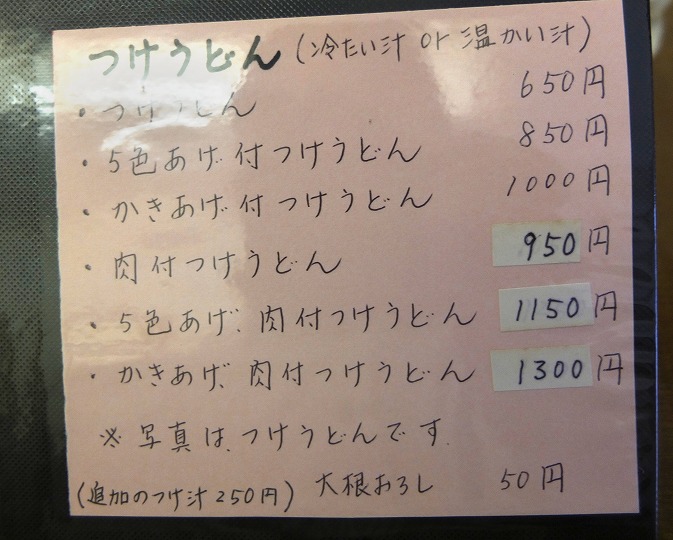 つけうどん (冷たい汁 or 温かい汁)
・つけうどん 650円
・5色あげ付つけうどん 850円
・かきあげ付つけうどん 1000円
・肉付つけうどん 950円
・5色あげ、肉付つけうどん 1150円
・かきあげ、肉付つけうどん 1300円
※写真は、つけうどんです.
(追加のつけ汁250円) 大根おろし 50円